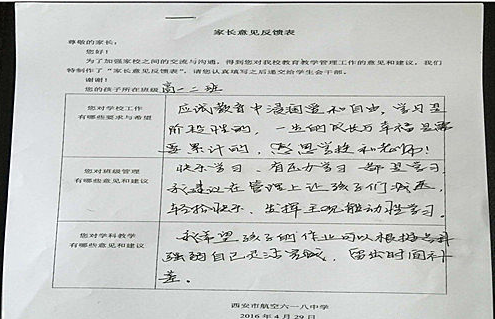 家长意见反馈表
尊敬的家长：
您好！
为了加强家校之间的交流与沟通，得到您对我校教育教学管理工作的意见和建议，我们
特制作了“家长意见反馈表”，请您认真填写之后递交给学生会干部。
谢谢！
您的孩子所在班级 高一二班
您对学校工作
有哪些要求与希望
应试教育中浸润爱和自由，学习是
阶段性的，一生的成长与幸福是需
要累计的，感恩学校和老师！
您对班级管理
有哪些意见和建议
快乐学习，有压力学习 都是学习
我建议在管理上让孩子们减压，
轻松快乐，发挥主观能动性学习。
您对学科教学
有哪些意见和建议
我希望孩子们作业可以根据
强弱自己灵活完成，留出时间补
差。
西安市航空六一八中学
2016 年 4 月 29 日